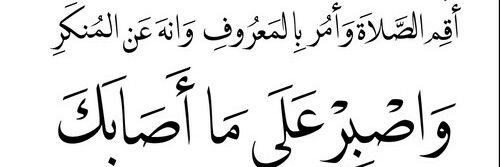 أَقِمِ الصَّلَاةَ وَأْمُر بِالمَعرُوفِ وَانهَ عَنِ المُنكَرِ
وَاصْبِرْ عَلَى مَا أَصَابَكَ